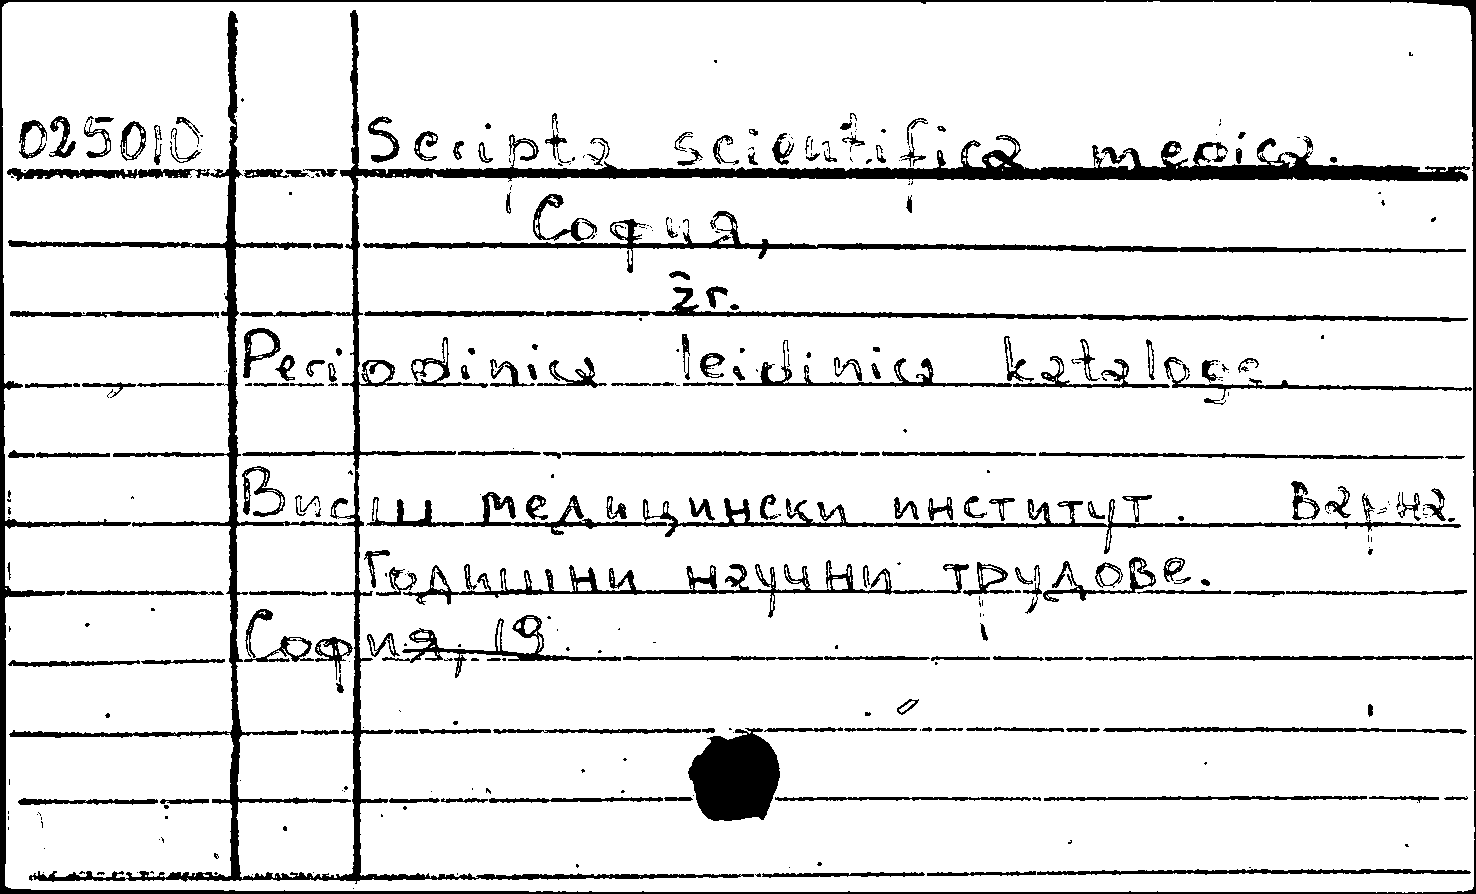 025010 Scripta scientifica medica.
София,
žr.
Periodinių leidinių kataloge.
Висш медицински институт. Варна.
Годишни научни трудове.
София, 19